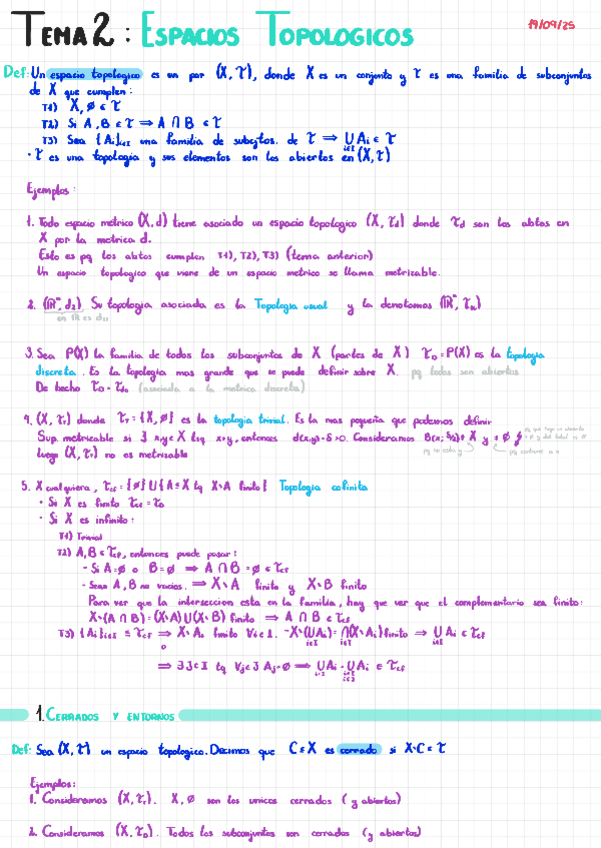 TEMA 2: ESPACIOS TOPOLOGICOS
19/09/25
Def: Un espacio topologico es un par (X, τ), donde X es un conjunto y τ es una familia de subconjuntos
de X que cumplen:
T1) X, ø ∈ τ
T2) Si A, B ∈ τ ⇒ A ∩ B ∈ τ
T3) Sea {Ai}i∈I una familia de subcjtos. de τ ⇒ ∪i∈I Ai ∈ τ
· τ es una topologia y sus elementos son los abiertos en (X, τ)
Ejemplos:
1. Todo espacio metrico (X, d) tiene asociado un espacio topologico (X, τd) donde τd son los abtos en
X por la metrica d.
Esto es pq los abtos cumplen T1), T2), T3) (tema anterior)
Un espacio topologico que viene de un espacio metrico se llama metrizable.
2. (ℝⁿ, d₂) Su topologia asociada es la Topologia usual y la denotamos (ℝⁿ, τu)
en ℝ es d₁₁
3. Sea P(X) la familia de todos los subconjuntos de X (partes de X) τD = P(X) es la topologia
discreta. Es la topologia mas grande que se puede definir sobre X. pq todos son abiertos
De hecho τD = τd (asociada a la metrica discreta)
4. (X, τT) donde τT = {X, ø} es la topologia trivial. Es la mas pequeña que podemos definir
Sup. metrizable si ∃ x,y ∈ X tq x≠y, entonces d(x,y) = δ > 0. Consideramos B(x; δ/2) ≠ X y ≠ ø
pq no esta y pq contiene a x
luego (X, τT) no es metrizable
5. X cualquiera, τcf = {ø} ∪ {A ⊆ X tq X∖A finito} Topologia cofinita
· Si X es finito τcf = τD
· Si X es infinito:
T1) Trivial
T2) A, B ∈ τcf, entonces puede pasar:
- Si A = ø o B = ø ⇒ A ∩ B = ø ∈ τcf
- Sean A, B no vacios. ⇒ X∖A finito y X∖B finito
Para ver que la interseccion esta en la familia, hay que ver que el complementario sea finito:
X∖(A ∩ B) = (X∖A) ∪ (X∖B) finito ⇒ A ∩ B ∈ τcf
T3) {Ai}i∈I ⊆ τcf ⇒ X∖Ai finito ∀i∈I. - X∖(∪i∈I Ai) = ∩i∈I (X∖Ai) finito ⇒ ∪i∈I Ai ∈ τcf
o
⇒ ∃ J ⊂ I tq ∀j∈J Aj = ø ⇒ ∪i∈I Ai = ∪ Ai ∈ τcf
1. CERRADOS Y ENTORNOS
Def: Sea (X, τ) un espacio topologico. Decimos que C ⊆ X es cerrado si X∖C ∈ τ
Ejemplos:
1. Consideramos (X, τT). X, ø son los unicos cerrados (y abiertos)
2. Consideramos (X, τD). Todos los subconjuntos son cerrados (y abiertos)